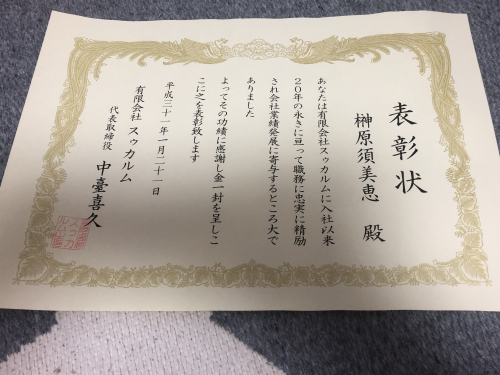 表彰状
榊原須美恵 殿
あなたは有限会社スゥカルムに入社以来
20年の永きに亘って職務に忠実に精励
され会社業績発展に寄与するところ大で
ありました
よってその功績に感謝し金一封を呈しこ
こに之を表彰致します
平成三十一年一月二十一日
有限会社 スゥカルム
代表取締役 中臺喜久